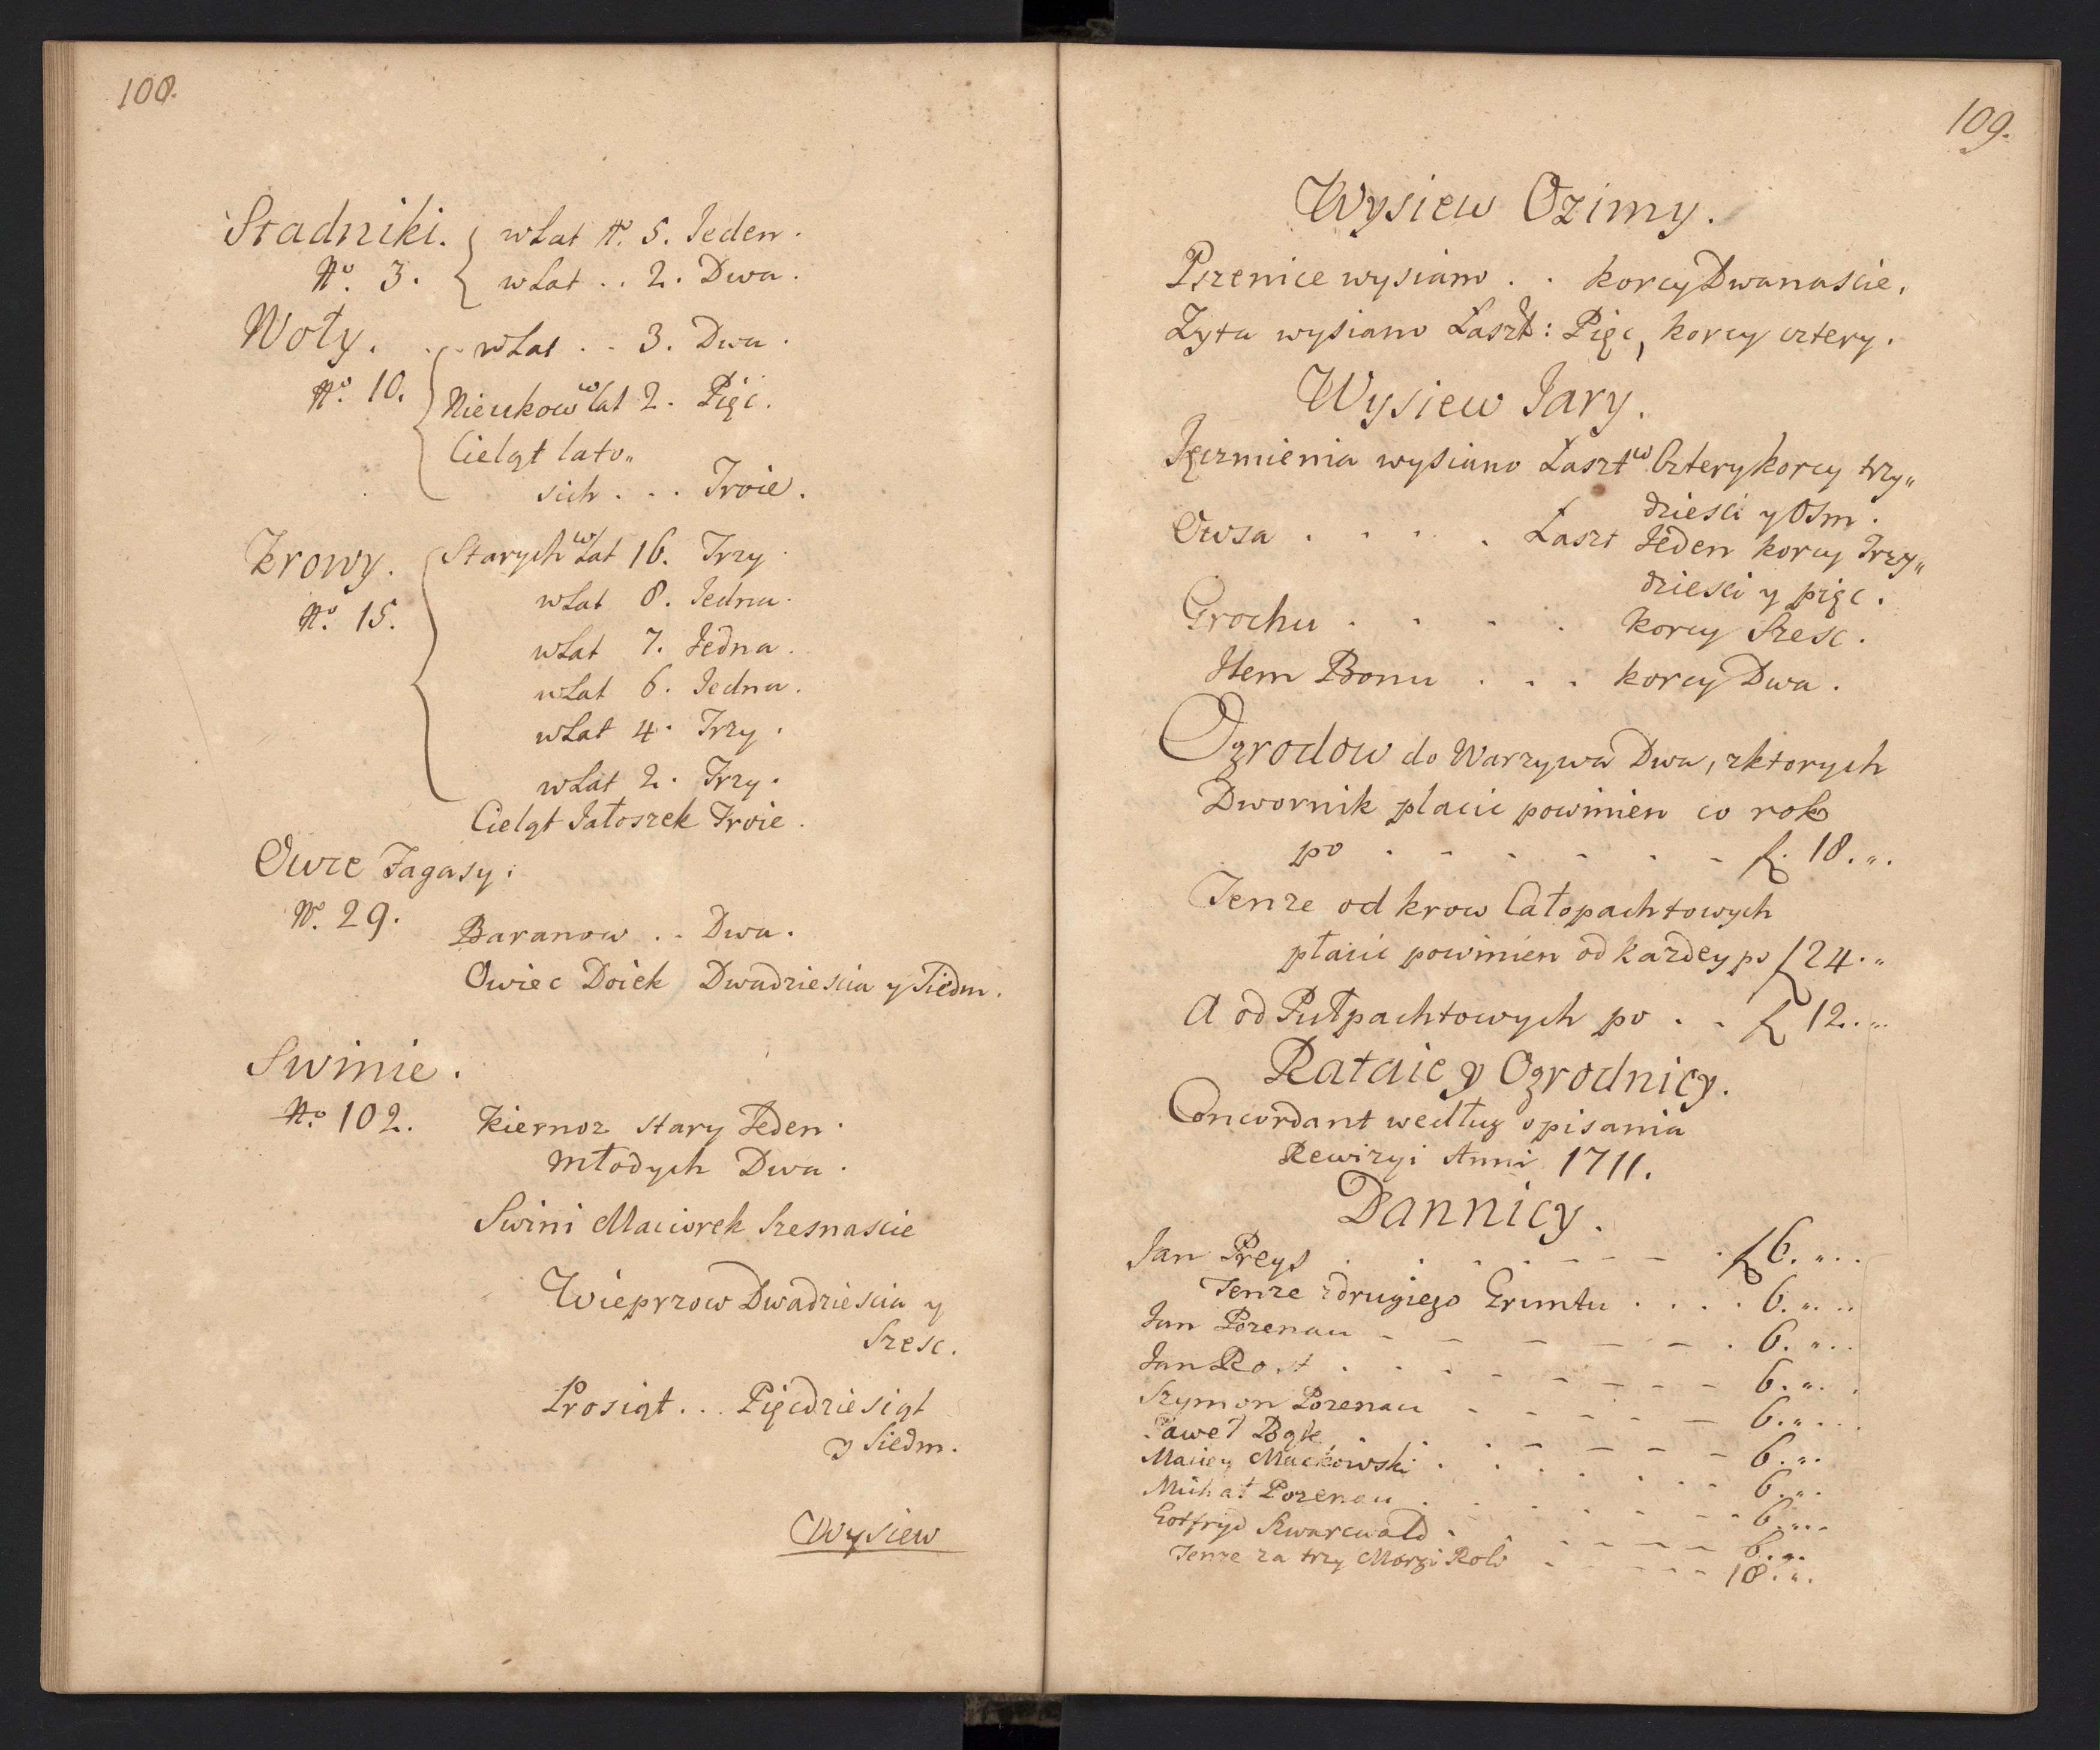 108.
Stadniki. w Lat No. 5. Jeden.
No. 3. w Lat .. 2. Dwa.
Woły. .. w Lat .. 3. Dwa.
No. 10. Nieukow w lat 2. Pięc.
Cieląt lato„
sich ... Troie.
Krowy. Starych w Lat 16. Trzy.
w Lat 8. Jedna.
No. 15.
w Lat 7. Jedna.
w Lat 6. Jedna.
w Lat 4. Trzy.
w Lat 2. Trzy.
Cieląt Jałoszek Troie.
Owce Fagasy:
No. 29.
Baranow .. Dwa.
Owiec Doiek Dwadziescia y Siedm.
Swinie.
No. 102. Kiernoz stary Jeden.
Młodych Dwa.
Swini Maciorek Szesnascie
Wieprzow Dwadziescia y
Szesc.
Prosiąt ... Pięcdziesiąt
y Siedm.
Wysiew
109.
Wysiew Ozimy.
Pszenice wysiano .. korcy Dwanascie.
Zyta wysiano Laszt: Pięc, korcy cztery.
Wysiew Jary.
Jęczmienia wysiano Laszt w Cztery korcy trzy„
dziesci y Osm.
Owsa ..... Laszt Jeden korcy Trzy„
dziesci y pięc.
Grochu .... korcy Szesc.
Item Bonu ... korcy Dwa.
Ogrodow do Warzywa Dwa, z ktorych
Dwornik placic powinien co rok
po ...... f. 18.„.
Tenze od krow Całopachtowych
płacic powinien od kazdey po f 24.„
A od Pułpachtowych po .. f 12.„.
Rataie y Ogrodnicy.
Concordant według opisania
Rewizyi Anni 1711.
Dannicy.
Jan Preys ...... f 6.„..
Tenze z drugiego Gruntu .... 6.„..
Jan Pozenau ...... 6.„..
Jan Rost ...... 6.„..
Szymon Pozenau ..... 6.„..
Paweł Bąk ...... 6.„.
Maciey Mackowski ...... 6.„.
Michał Pozenau ...... 6.„..
Gotfryd Szwarcwald ..... 6.„.
Tenze za trzy Morgi Roli ..... 18.„.